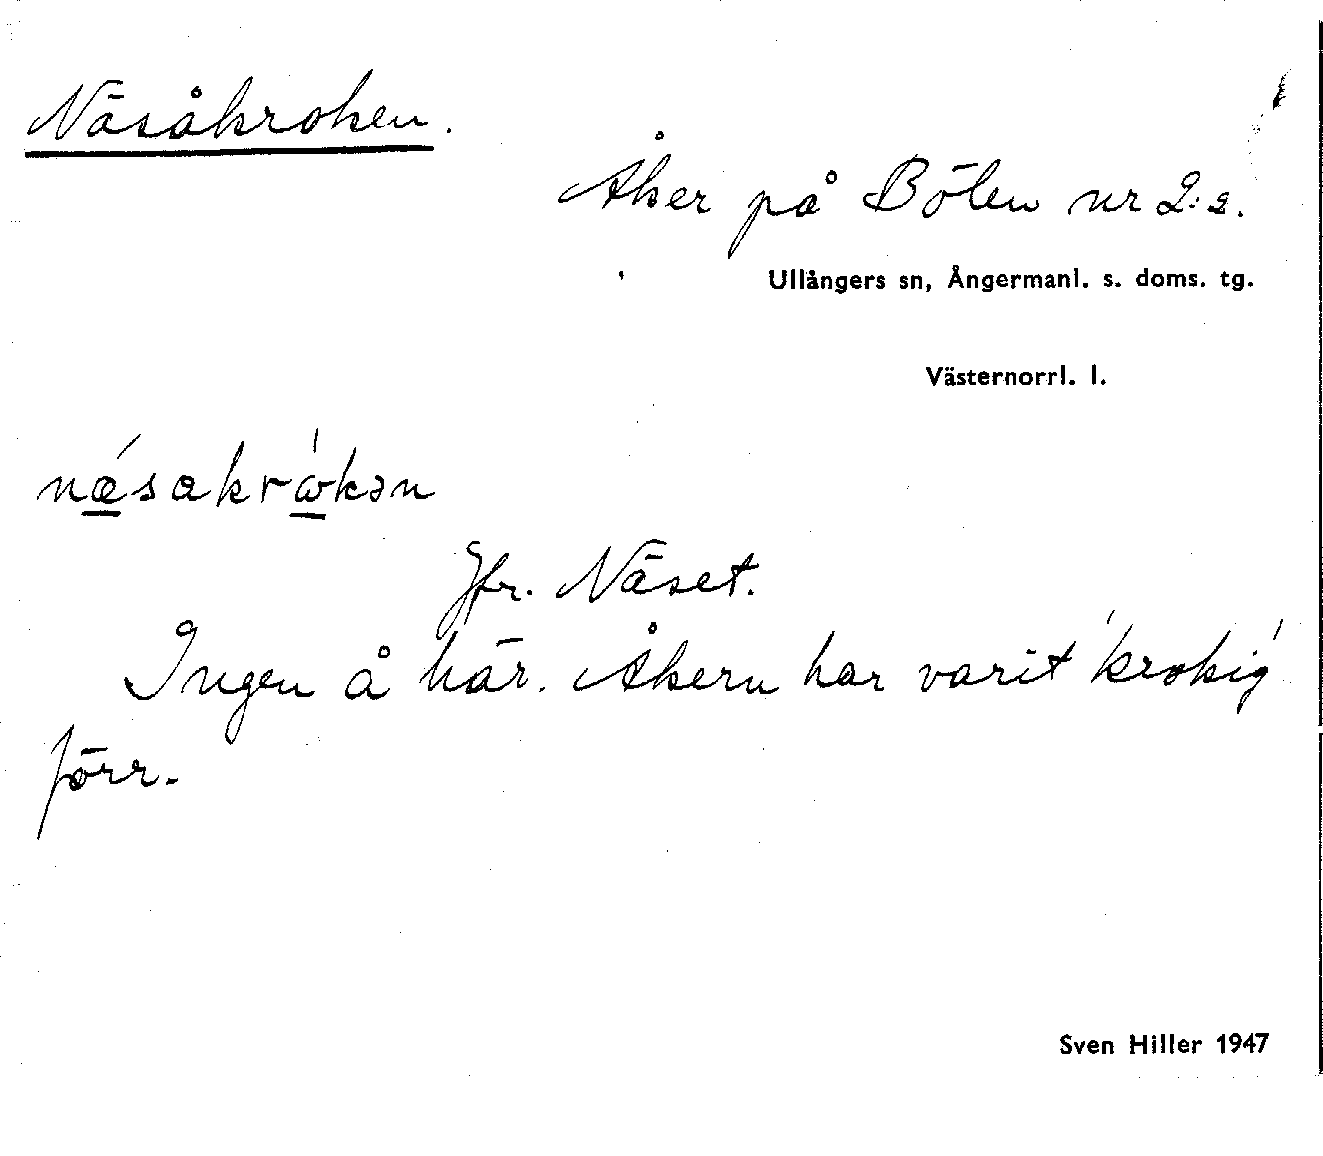 Näsåkroken.
Åker på Bölen nr 2:2.
Ullångers sn, Ångermanl. s. doms. tg.
Västernorrl. l.
næ´sakrω`kən
Jfr. Näset.
Ingen å här. Åkern har varit 'krokig'
förr.
Sven Hiller 1947